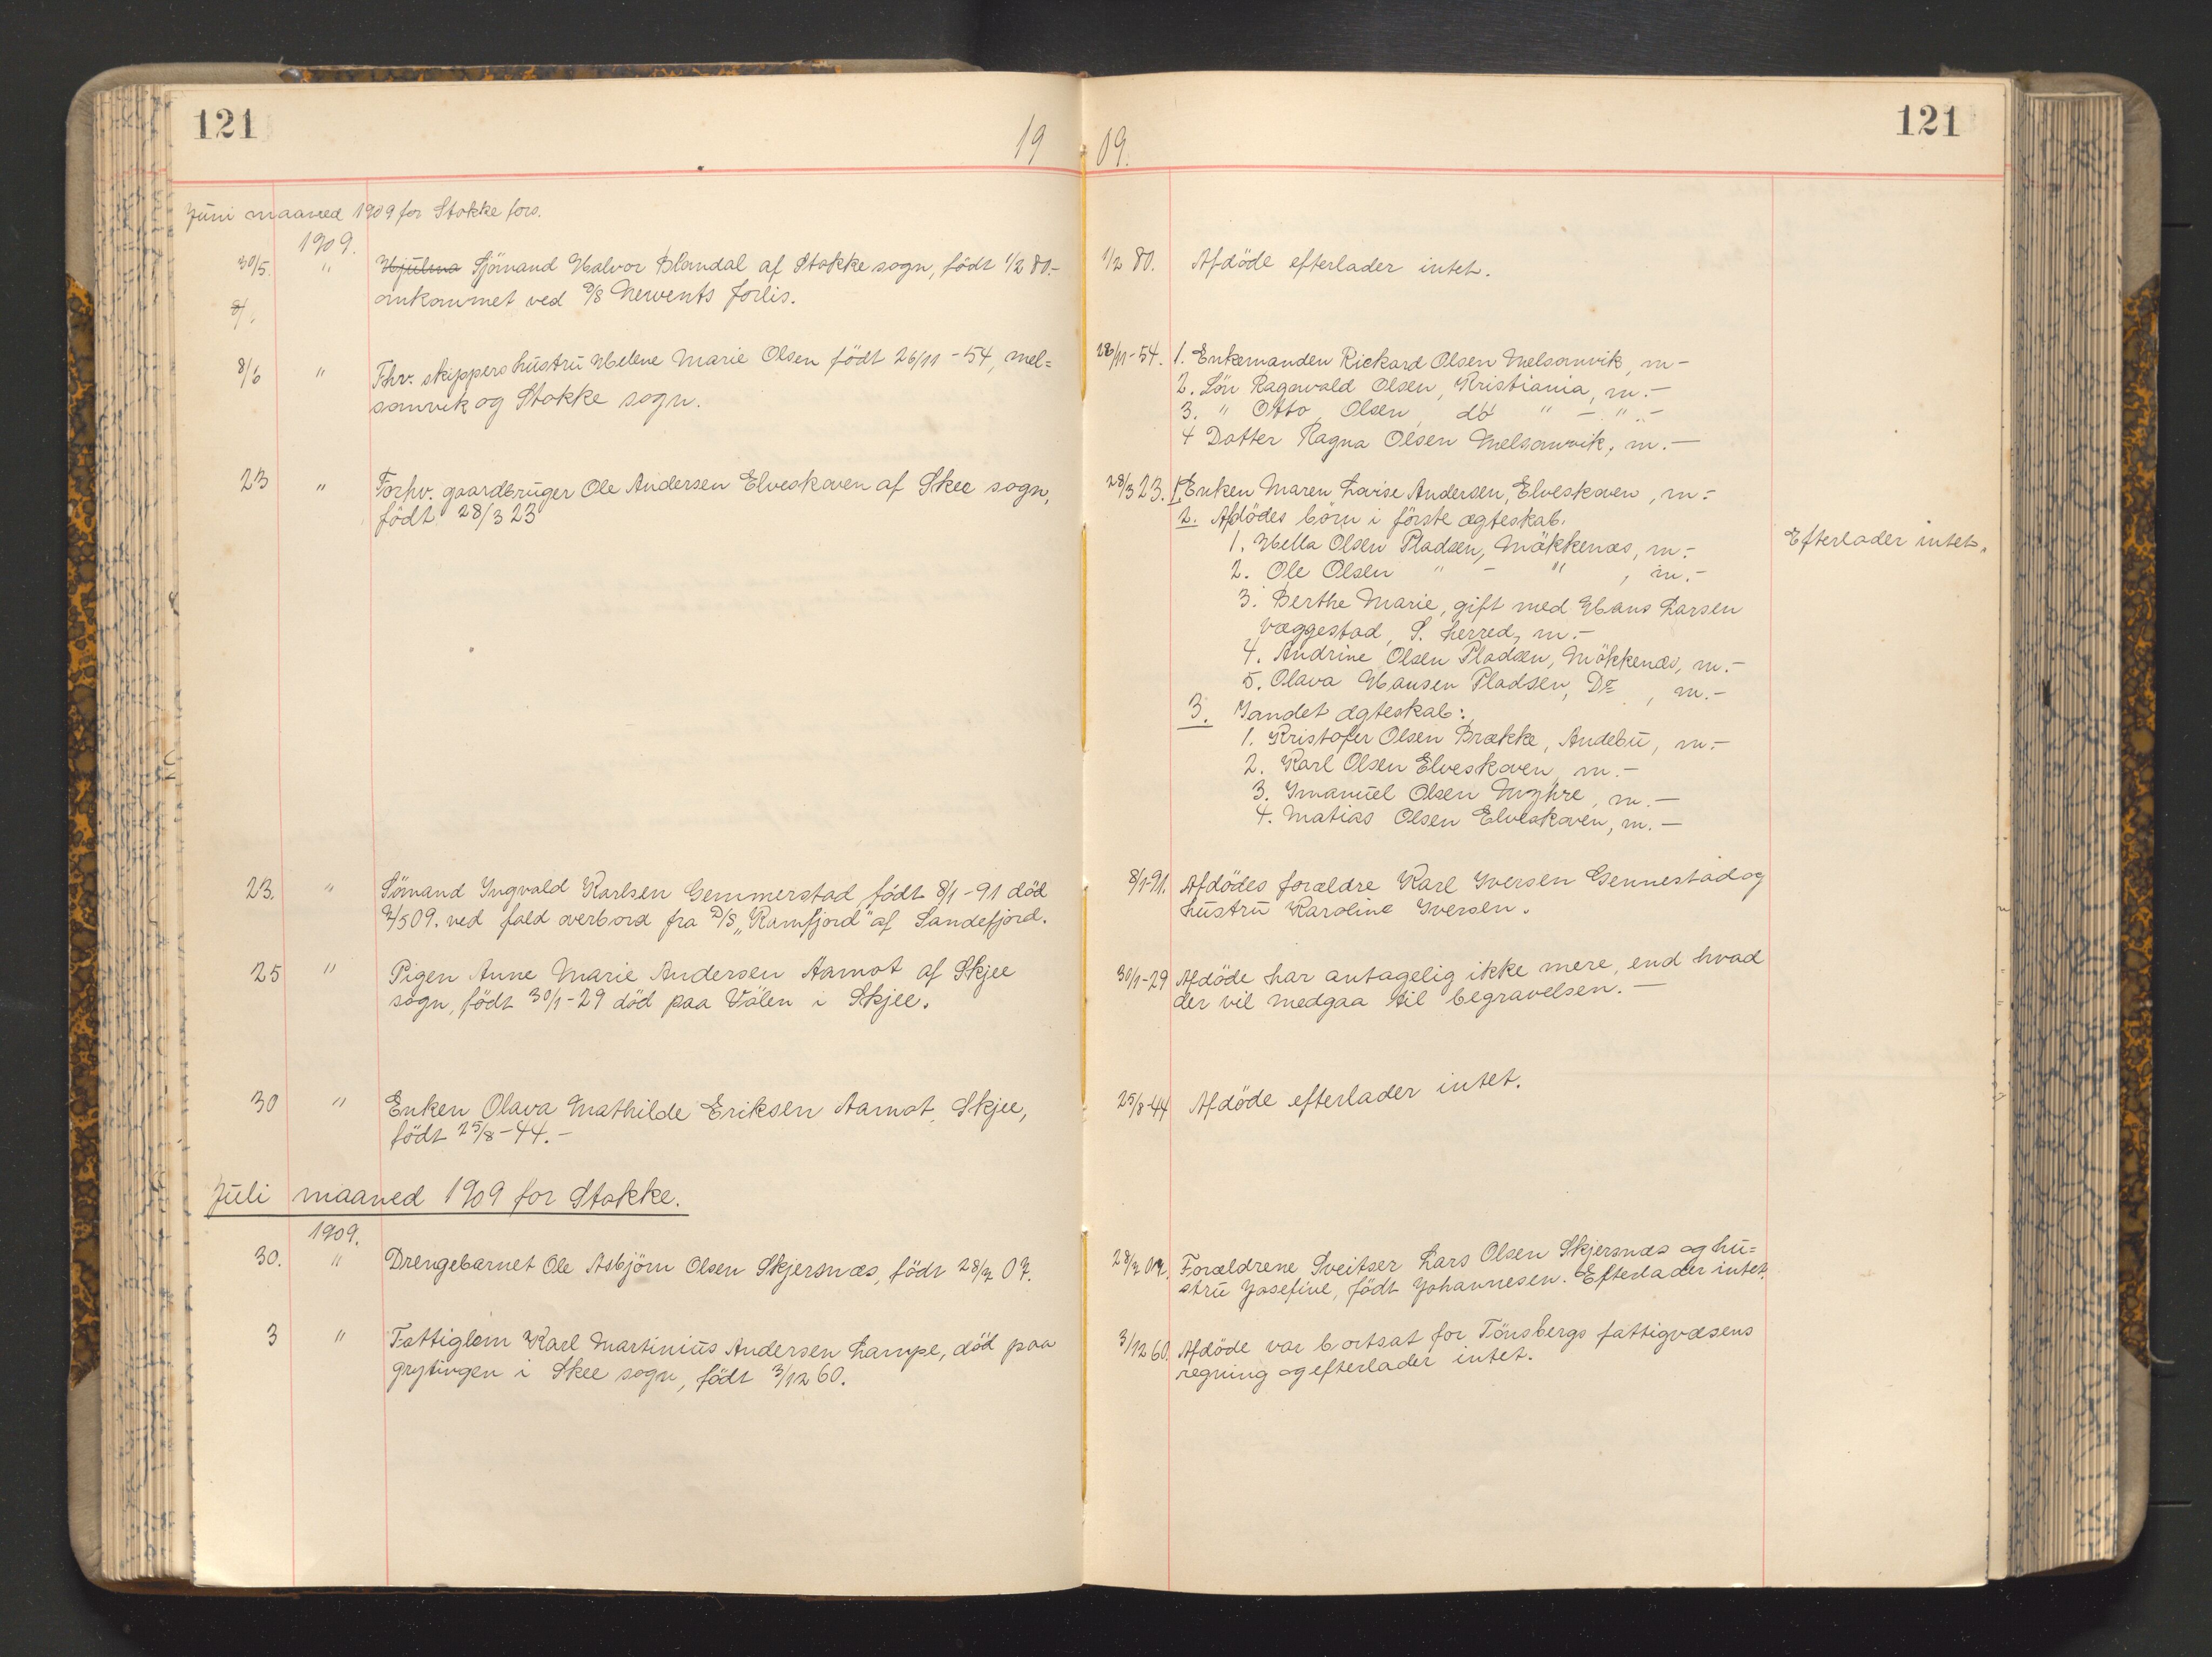 121
19
Juni maaned 1909 for Stokke fors.
1909.
30/5. " Hjulma Sjömand Halvor Blomdal af Stokke sogn, födt 1/2 80.-
omkommet ved D/S Nervents forlis.
8/.
8/6 " Fhv. skippers hustru Helene Marie Olsen födt 26/11-54, Mel=
somvik og Stokke sogn.
23 " Forhv. gaardbruger Ole Andersen Elveskoven af Skee sogn,
födt 28/3 23
23. " Sömand Ingvald Karlsen Gemmerstad, födt 8/1-91 död
2/5 09. ved fald overbord fra D/S „Ramfjord" af Sandefjord.
25 " Pigen Anne Marie Andersen Aamot af Skjee
sogn, födt 30/1-29 död paa Vålen i Skjee.
30 " Enken Olava Mathilde Eriksen Aamot, Skjee,
födt 25/8-44.-
Juli maaned 1909 for Stokke.
1909.
30. " Drengebarnet Ole Asbjörn Olsen Skjersnæs, födt 28/7 07.
3 " Fattiglem Karl Martinius Andersen Lampe, död paa
Grytingen i Skee sogn, födt 3/12 60.
121
09.
1/2 80. Afdöde efterlader intet.
26/11-54. 1. Enkemanden Rickard Olsen Melsomvik, m-
2. Sön Ragnvald Olsen, Kristiania, m.-
3. " Otto Olsen, do " - " -
4 Datter Ragna Olsen Melsomvik, m.-
28/3 23. 1. Enken Maren Lovise Andersen, Elveskoven, m.-
2. Afdödes börn i förste ægteskab.
1. Hella Olsen Pladsen, Mökkenæs, m.-
Efterlader intet.
2. Ole Olsen " - " , m.-
3. Berthe Marie, gift med Hans Larsen
Væggestad, S. herred, m.-
4. Andrine Olsen Pladsen, Mökkenæs, m.-
5. Olava Hansen Pladsen, Do , m.-
3. I andet ægteskab:
1. Kristofer Olsen Brække, Andebu, m.-
2. Karl Olsen Elveskoven m.-
3. Imanuel Olsen Myhre, m.-
4. Matias Olsen Elveskoven, m.-
8/1-91. Afdödes forældre Karl Iversen Gennestad og
hustru Karoline Iversen.
30/1-29 Afdöde har antagelig ikke mere, end hvad
der vil medgaa til begravelsen.-
25/8-44 Afdöde efterlader intet.
28/7 07. Forældrene Sveitser Lars Olsen Skjersnæs og hu=
stru Josefine, födt Johannesen. Efterlader intet.
3/12 60. Afdöde var bortsat for Tönsbergs fattigvæsens
regning og efterlader intet.